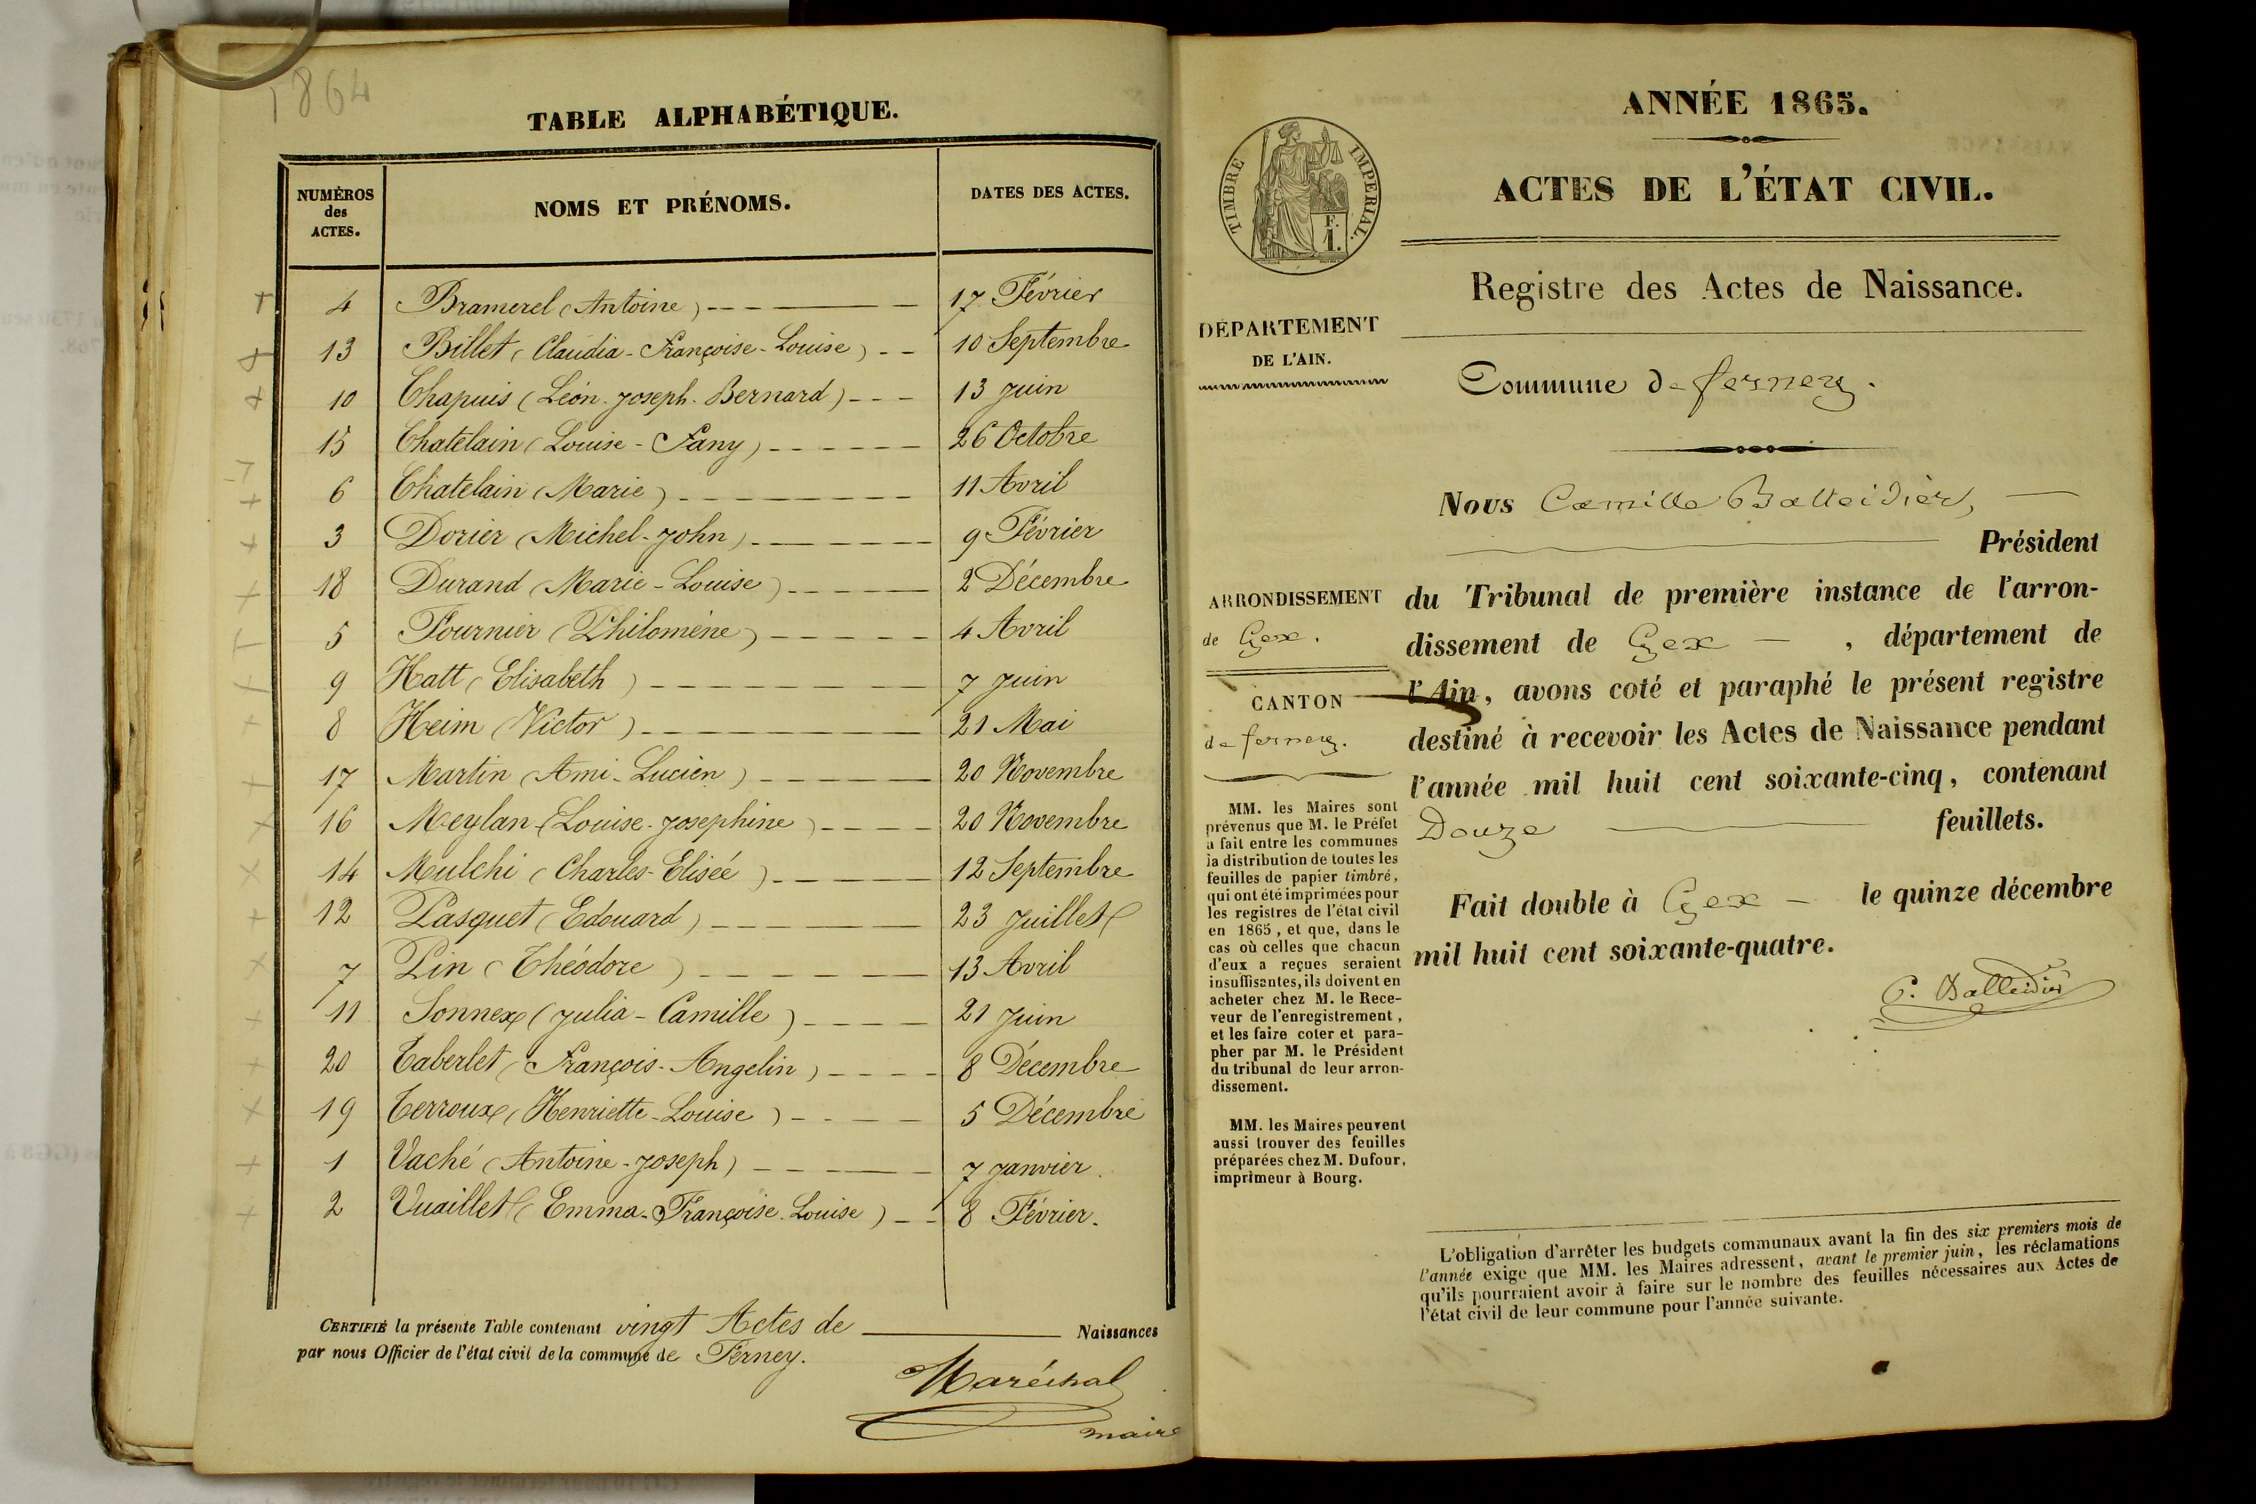 1864
TABLE ALPHABÉTIQUE.
NUMÉROS
des
ACTES.
NOMS ET PRÉNOMS.
DATES DES ACTES.
4 Bramerel (Antoine) 17 Février
13 Billet (Claudia-Françoise-Louise) 10 Septembre
10 Chapuis (Léon-Joseph-Bernard) 13 Juin
15 Chatelain (Louise-Fany) 26 Octobre
6 Chatelain (Marie) 11 Avril
3 Dorier (Michel-John) 9 Février
18 Durand (Marie-Louise) 2 Décembre
5 Fournier (Philomène) 4 Avril
9 Hatt (Elisabeth) 7 Juin
8 Heim (Victor) 21 Mai
17 Martin (Ami-Lucien) 20 Novembre
16 Meylan (Louise-Josephine) 20 Novembre
14 Mulchi (Charles-Elisée) 12 Septembre
12 Pasquet (Edouard) 23 Juillet
7 Pin (Théodore) 13 Avril
11 Sonnex (Julia-Camille) 21 Juin
20 Taberlet (François-Angelin) 8 Décembre
19 Terroux (Henriette-Louise) 5 Décembre
1 Vaché (Antoine-Joseph) 7 Janvier.
2 Vuaillet (Emma-Françoise-Louise) 8 Février.
CERTIFIÉ la présente Table contenant vingt Actes de Naissances
par nous Officier de l'état civil de la commune de Ferney.
Maréchal
maire
TIMBRE IMPERIAL.
F.
1.
DÉPARTEMENT
DE L'AIN.
ARRONDISSEMENT
de Gex.
CANTON
de ferney.
MM. les Maires sont
prévenus que M. le Préfet
a fait entre les communes
la distribution de toutes les
feuilles de papier timbré,
qui ont été imprimées pour
les registres de l'état civil
en 1865, et que, dans le
cas où celles que chacun
d'eux a reçues seraient
insuffisantes, ils doivent en
acheter chez M. le Rece-
veur de l'enregistrement,
et les faire coter et para-
pher par M. le Président
du tribunal de leur arron-
dissement.
MM. les Maires peuvent
aussi trouver des feuilles
préparées chez M. Dufour,
imprimeur à Bourg.
ANNÉE 1865.
ACTES DE L'ÉTAT CIVIL.
Registre des Actes de Naissance.
Commune de ferney.
Nous Camille Balleidier,
Président
du Tribunal de première instance de l'arron-
dissement de Gex, département de
l'Ain, avons coté et paraphé le présent registre
destiné à recevoir les Actes de Naissance pendant
l'année mil huit cent soixante-cinq, contenant
Douze feuillets.
Fait double à Gex le quinze décembre
mil huit cent soixante-quatre.
C. Balleidier
L'obligation d'arrêter les budgets communaux avant la fin des six premiers mois de
l'année exige que MM. les Maires adressent, avant le premier juin, les réclamations
qu'ils pourraient avoir à faire sur le nombre des feuilles nécessaires aux Actes de
l'état civil de leur commune pour l'année suivante.